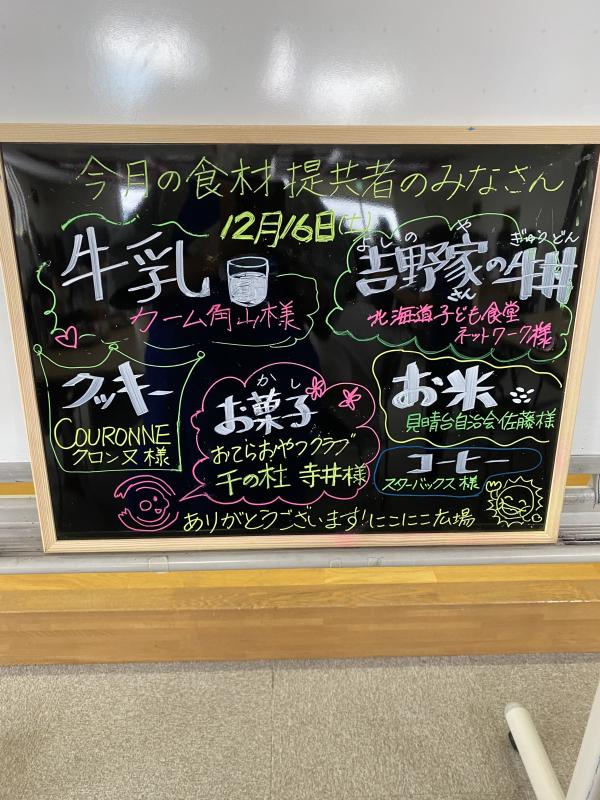 今月の食材提共者のみなさん
12月16日(土)
牛乳
カーム角山様
よしの や ぎゅうどん
吉野家の牛丼
さん
北海道子ども食堂
ネットワーク様
クッキー
COURONNE
クロンヌ様
かし
お菓子
おてらおやつクラブ
千の杜 寺井様
お米
見晴台自治会佐藤様
コーヒー
スターバックス様
ありがとうございます!にこにこ広場